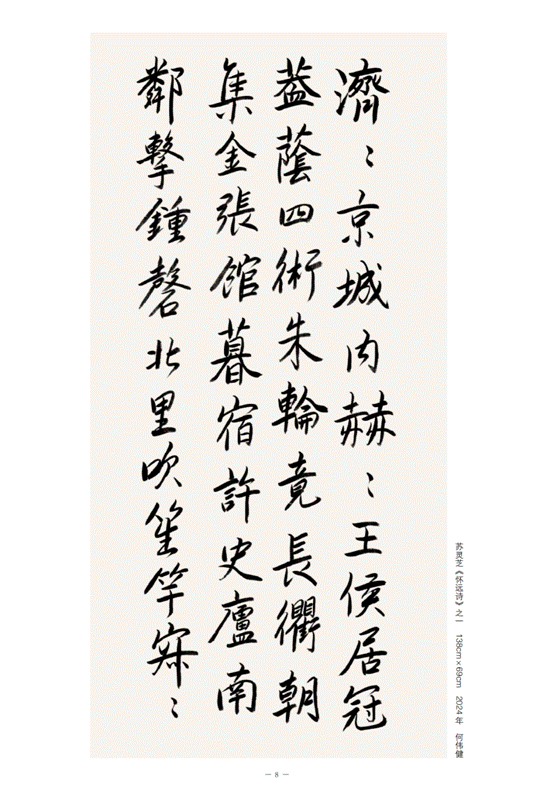 濟〻京城内赫〻王侯居冠
蓋蔭四術朱輪竟長衢朝
集金張館暮宿許史廬南
鄰擊鍾磬北里吹笙竽寂〻
苏灵芝《怀远诗》之一 138cm×69cm 2024年 何伟健
— 8 —